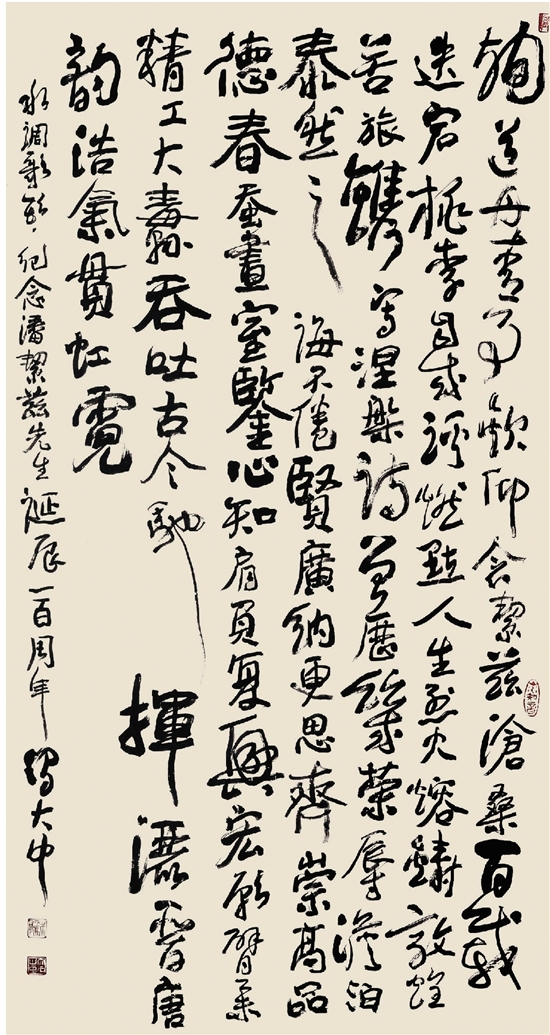 殉道丹青事歎仰念絜兹滄桑百載
迷宕桃李自成蹊燃點人生烈火熔鑄敦煌
苦旅鐫寫涅槃詩曾歷榮辱淡泊
泰然之誨不倦賢廣納更思齊崇高品
德春蚕畫室鑒心知肩負復興宏願臂
精工大纛吞吐古今馳揮灑晋唐
韻浩氣貫虹霓
水調歌頭紀念潘絜兹先生誕辰一百周年馮大中